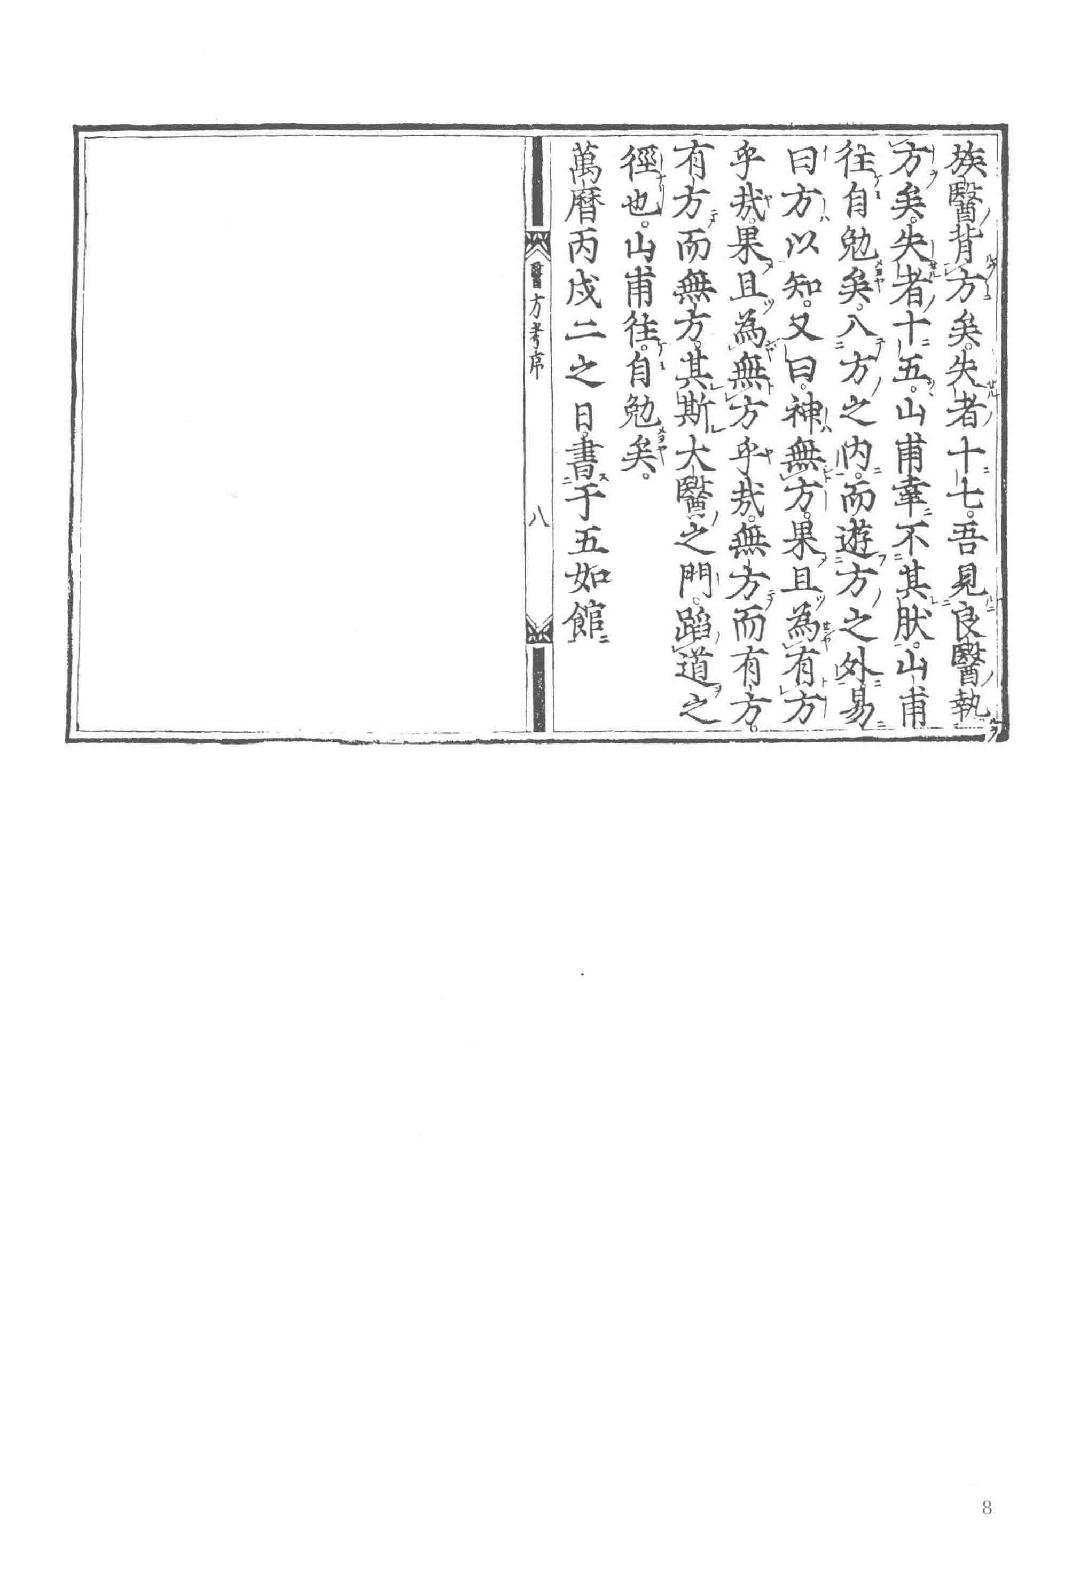 族醫背方矣。失者十七。吾見良醫執
方矣。失者十五。山甫幸不其肰。山甫
往自勉矣。八方之内。而遊方之外。易
曰方以知。又曰。神無方。果且為有方
乎㢤。果且為無方乎㢤。無方而有方。
有方而無方。其斯大醫之門。蹈道之
徑也。山甫往。自勉矣。
萬曆丙戌二之日。書于五如館
醫方考序
八
8